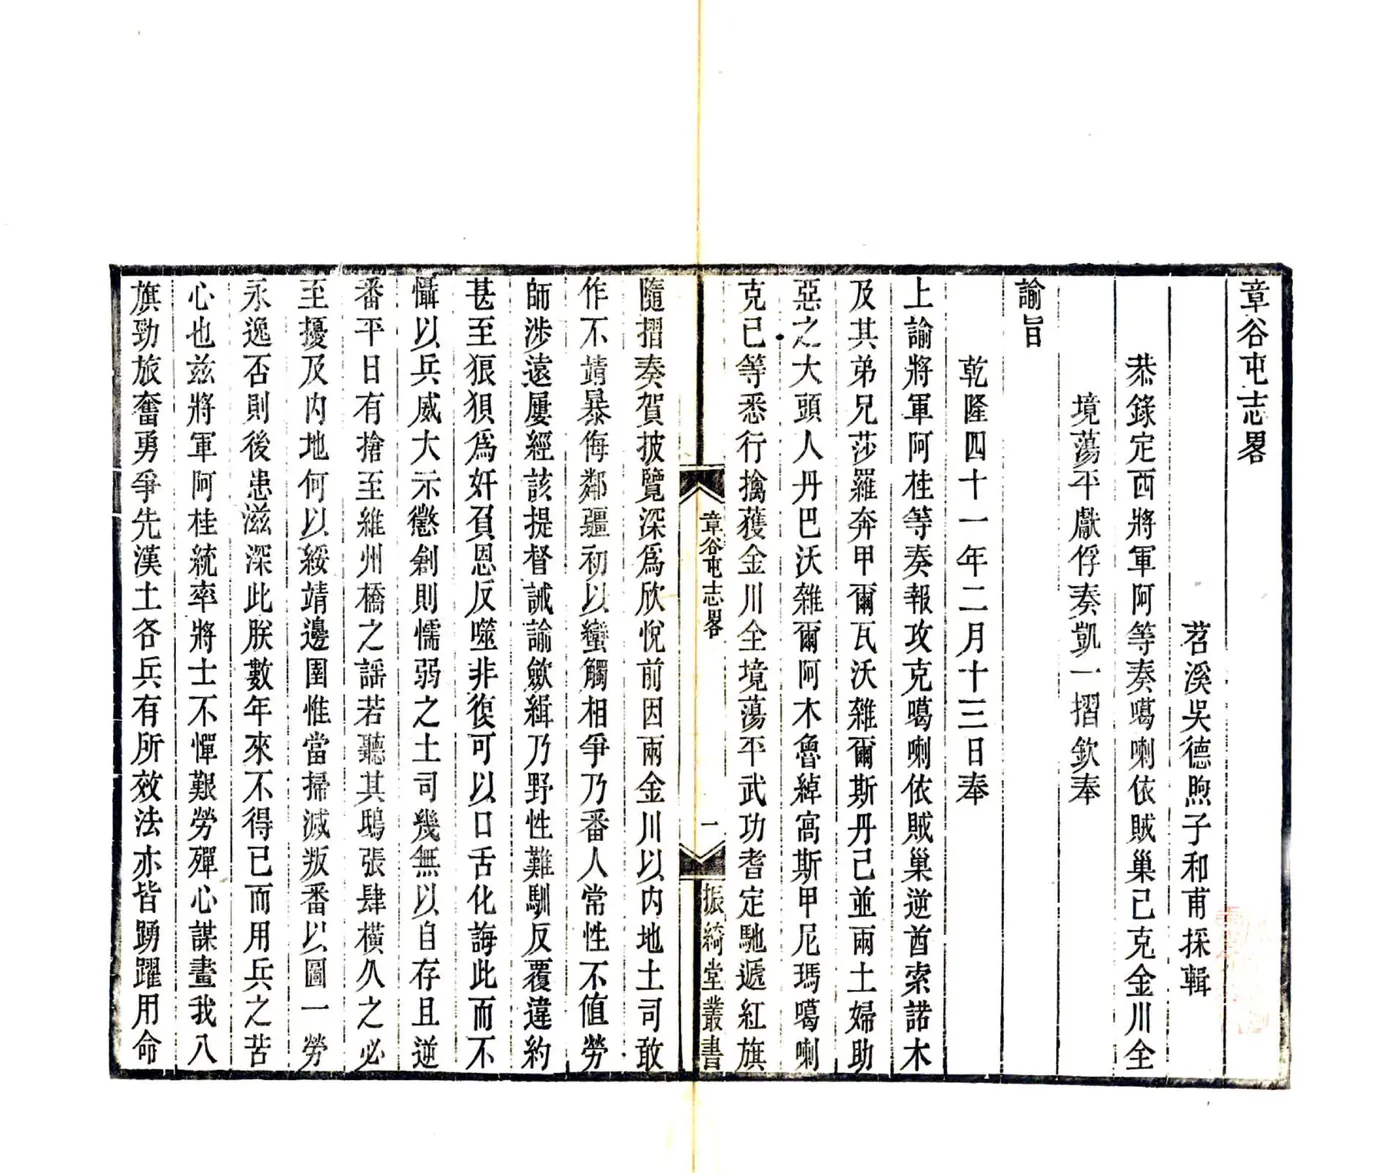 章谷屯志畧
苕溪吳德煦子和甫採輯
恭錄定西將軍阿等奏噶喇依賊巢已克金川全
境蕩平獻俘奏凱一摺欽奉
諭旨
乾隆四十一年二月十三日奉
上諭將軍阿桂等奏報攻克噶喇依賊巢逆酋索諾木
及其弟兄莎羅奔甲爾瓦沃雜爾斯丹巴並兩土婦助
惡之大頭人丹巴沃雜爾阿木魯綽窩斯甲尼瑪噶喇
克巴等悉行擒獲金川全境蕩平武功耆定馳遞紅旗
章谷屯志畧
一
振綺堂叢書
隨摺奏賀披覽深為欣悅前因兩金川以內地土司敢
作不靖暴侮鄰疆初以蠻觸相爭乃番人常性不值勞
師涉遠屢經該提督誡諭歛緝乃野性難馴反覆違約
甚至狼狽為奸負恩反噬非復可以口舌化誨此而不
懾以兵威大示懲創則懦弱之土司幾無以自存且逆
番平日有搶至維州橋之謠若聽其鴟張肆橫久之必
至擾及內地何以綏靖邊圉惟當掃滅叛番以圖一勞
永逸否則後患滋深此朕數年來不得已而用兵之苦
心也茲將軍阿桂統率將士不憚艱勞殫心謀畫我八
旗勁旅奮勇爭先漢土各兵有所效法亦皆踴躍用命